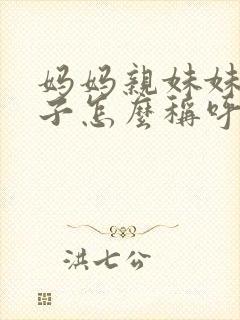 妈妈親妹妹
子怎麼稱呼
洪七公